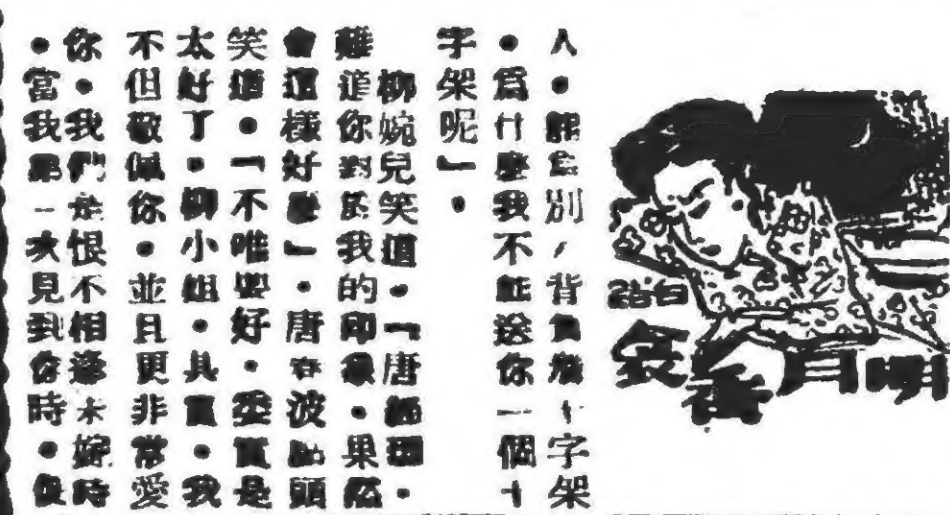 明月香衾
白喆
人。能為別人背負起十字架
。爲什麼我不能送你一個十
字架呢」。
柳婉兒笑道。「唐經理。
難道你對於我的印象。果然
會這樣好麼」。唐春波點頭
笑道。「不唯要好。委實是
太好了。柳小姐。其實。我
不但敬佩你。並且更非常愛
你。我們是恨不相逢未嫁時
。當我第一次見到你時。便